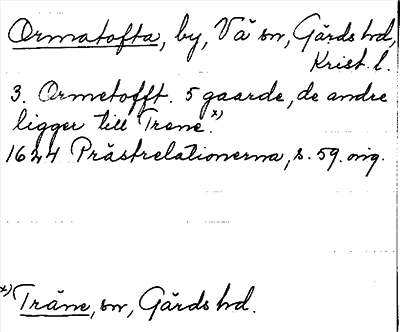 Ormatofta, by, Vä sn, Gärds hd,
Krist. l.
3. Ormetofft. 5 gaarde, de andre
ligger till Trene.*)
1624 Prästrelationerna, s. 59. orig.
*) Träne, sn, Gärds hd.